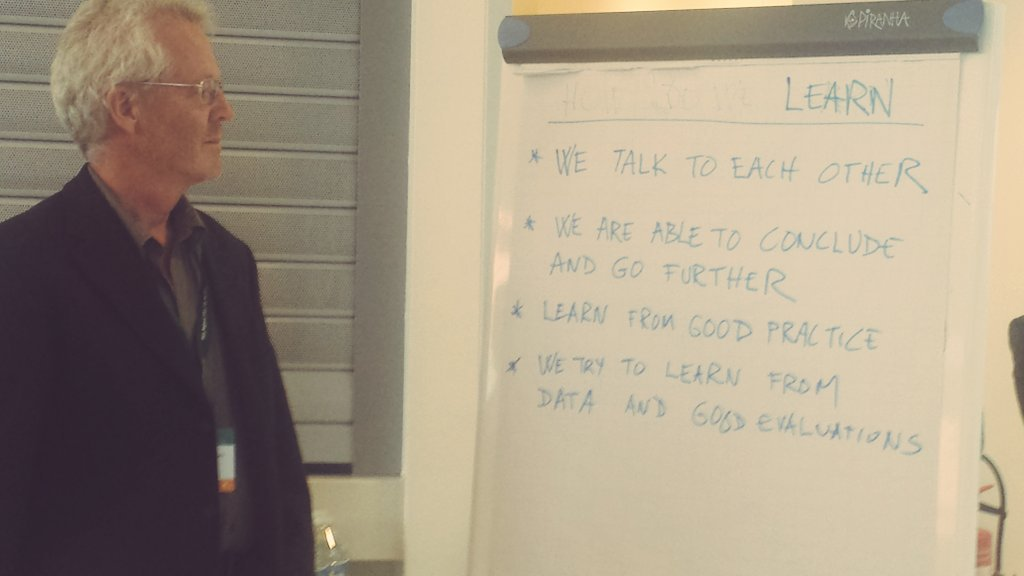 PIRANHA
HOW DO WE LEARN
* WE TALK TO EACH OTHER
* WE ARE ABLE TO CONCLUDE
AND GO FURTHER
* LEARN FROM GOOD PRACTICE
* WE TRY TO LEARN FROM
DATA AND GOOD EVALUATIONS